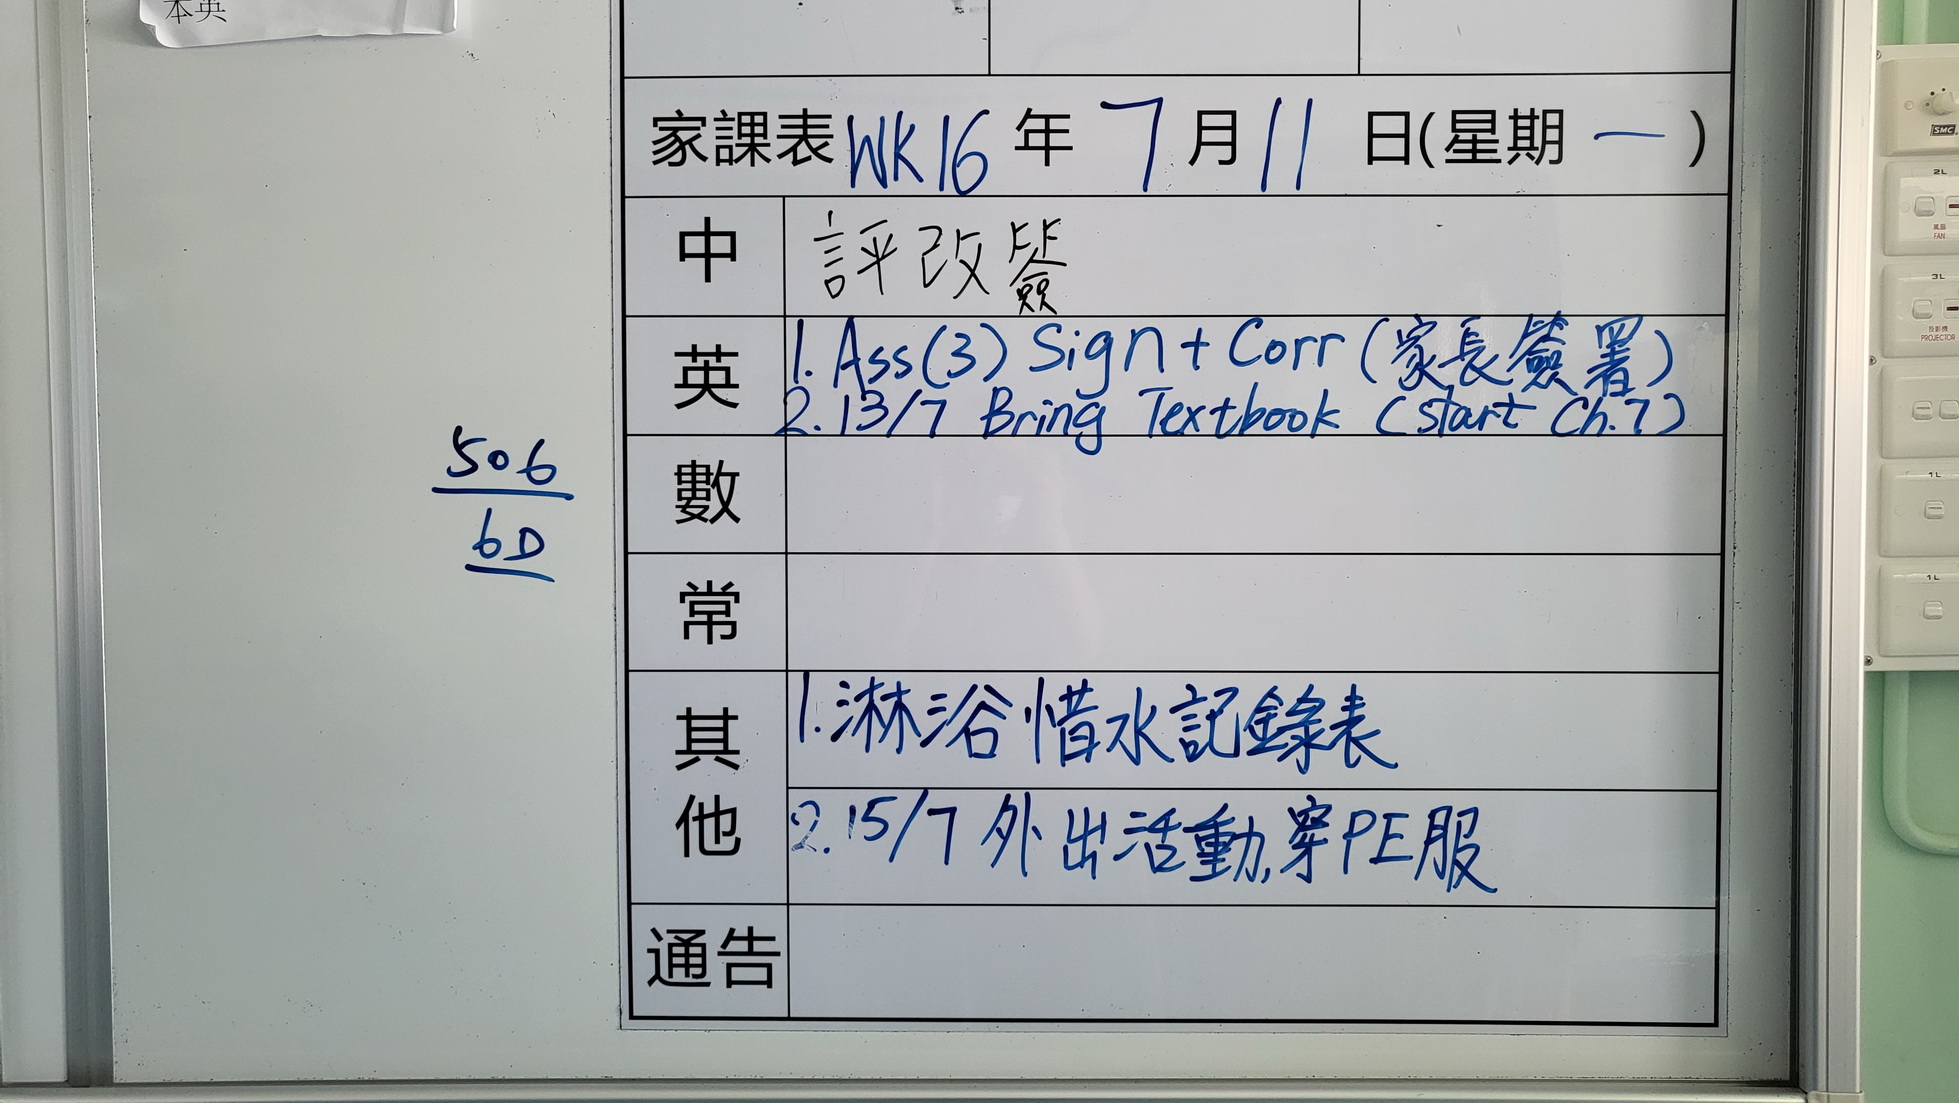 本英
家課表 WK16 年 7 月 11 日(星期 一 )
中 評改簽
英 1. Ass(3) Sign + Corr (家長簽署)
2. 13/7 Bring Textbook (start Ch.7)
506
6D
數
常
其他 1. 淋浴惜水記錄表
2. 15/7 外出活動,穿PE服
通告
SMC
2L
風扇
FAN
3L
投影機
PROJECTOR
1L
1L